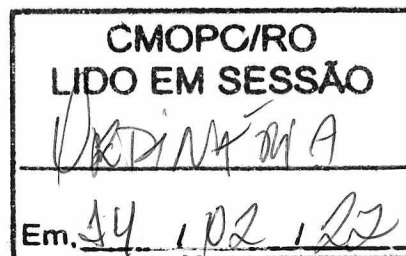 CMOPO/RO
LIDO EM SESSÃO
ORDINÁRIA
Em. 14 / 02 / 22